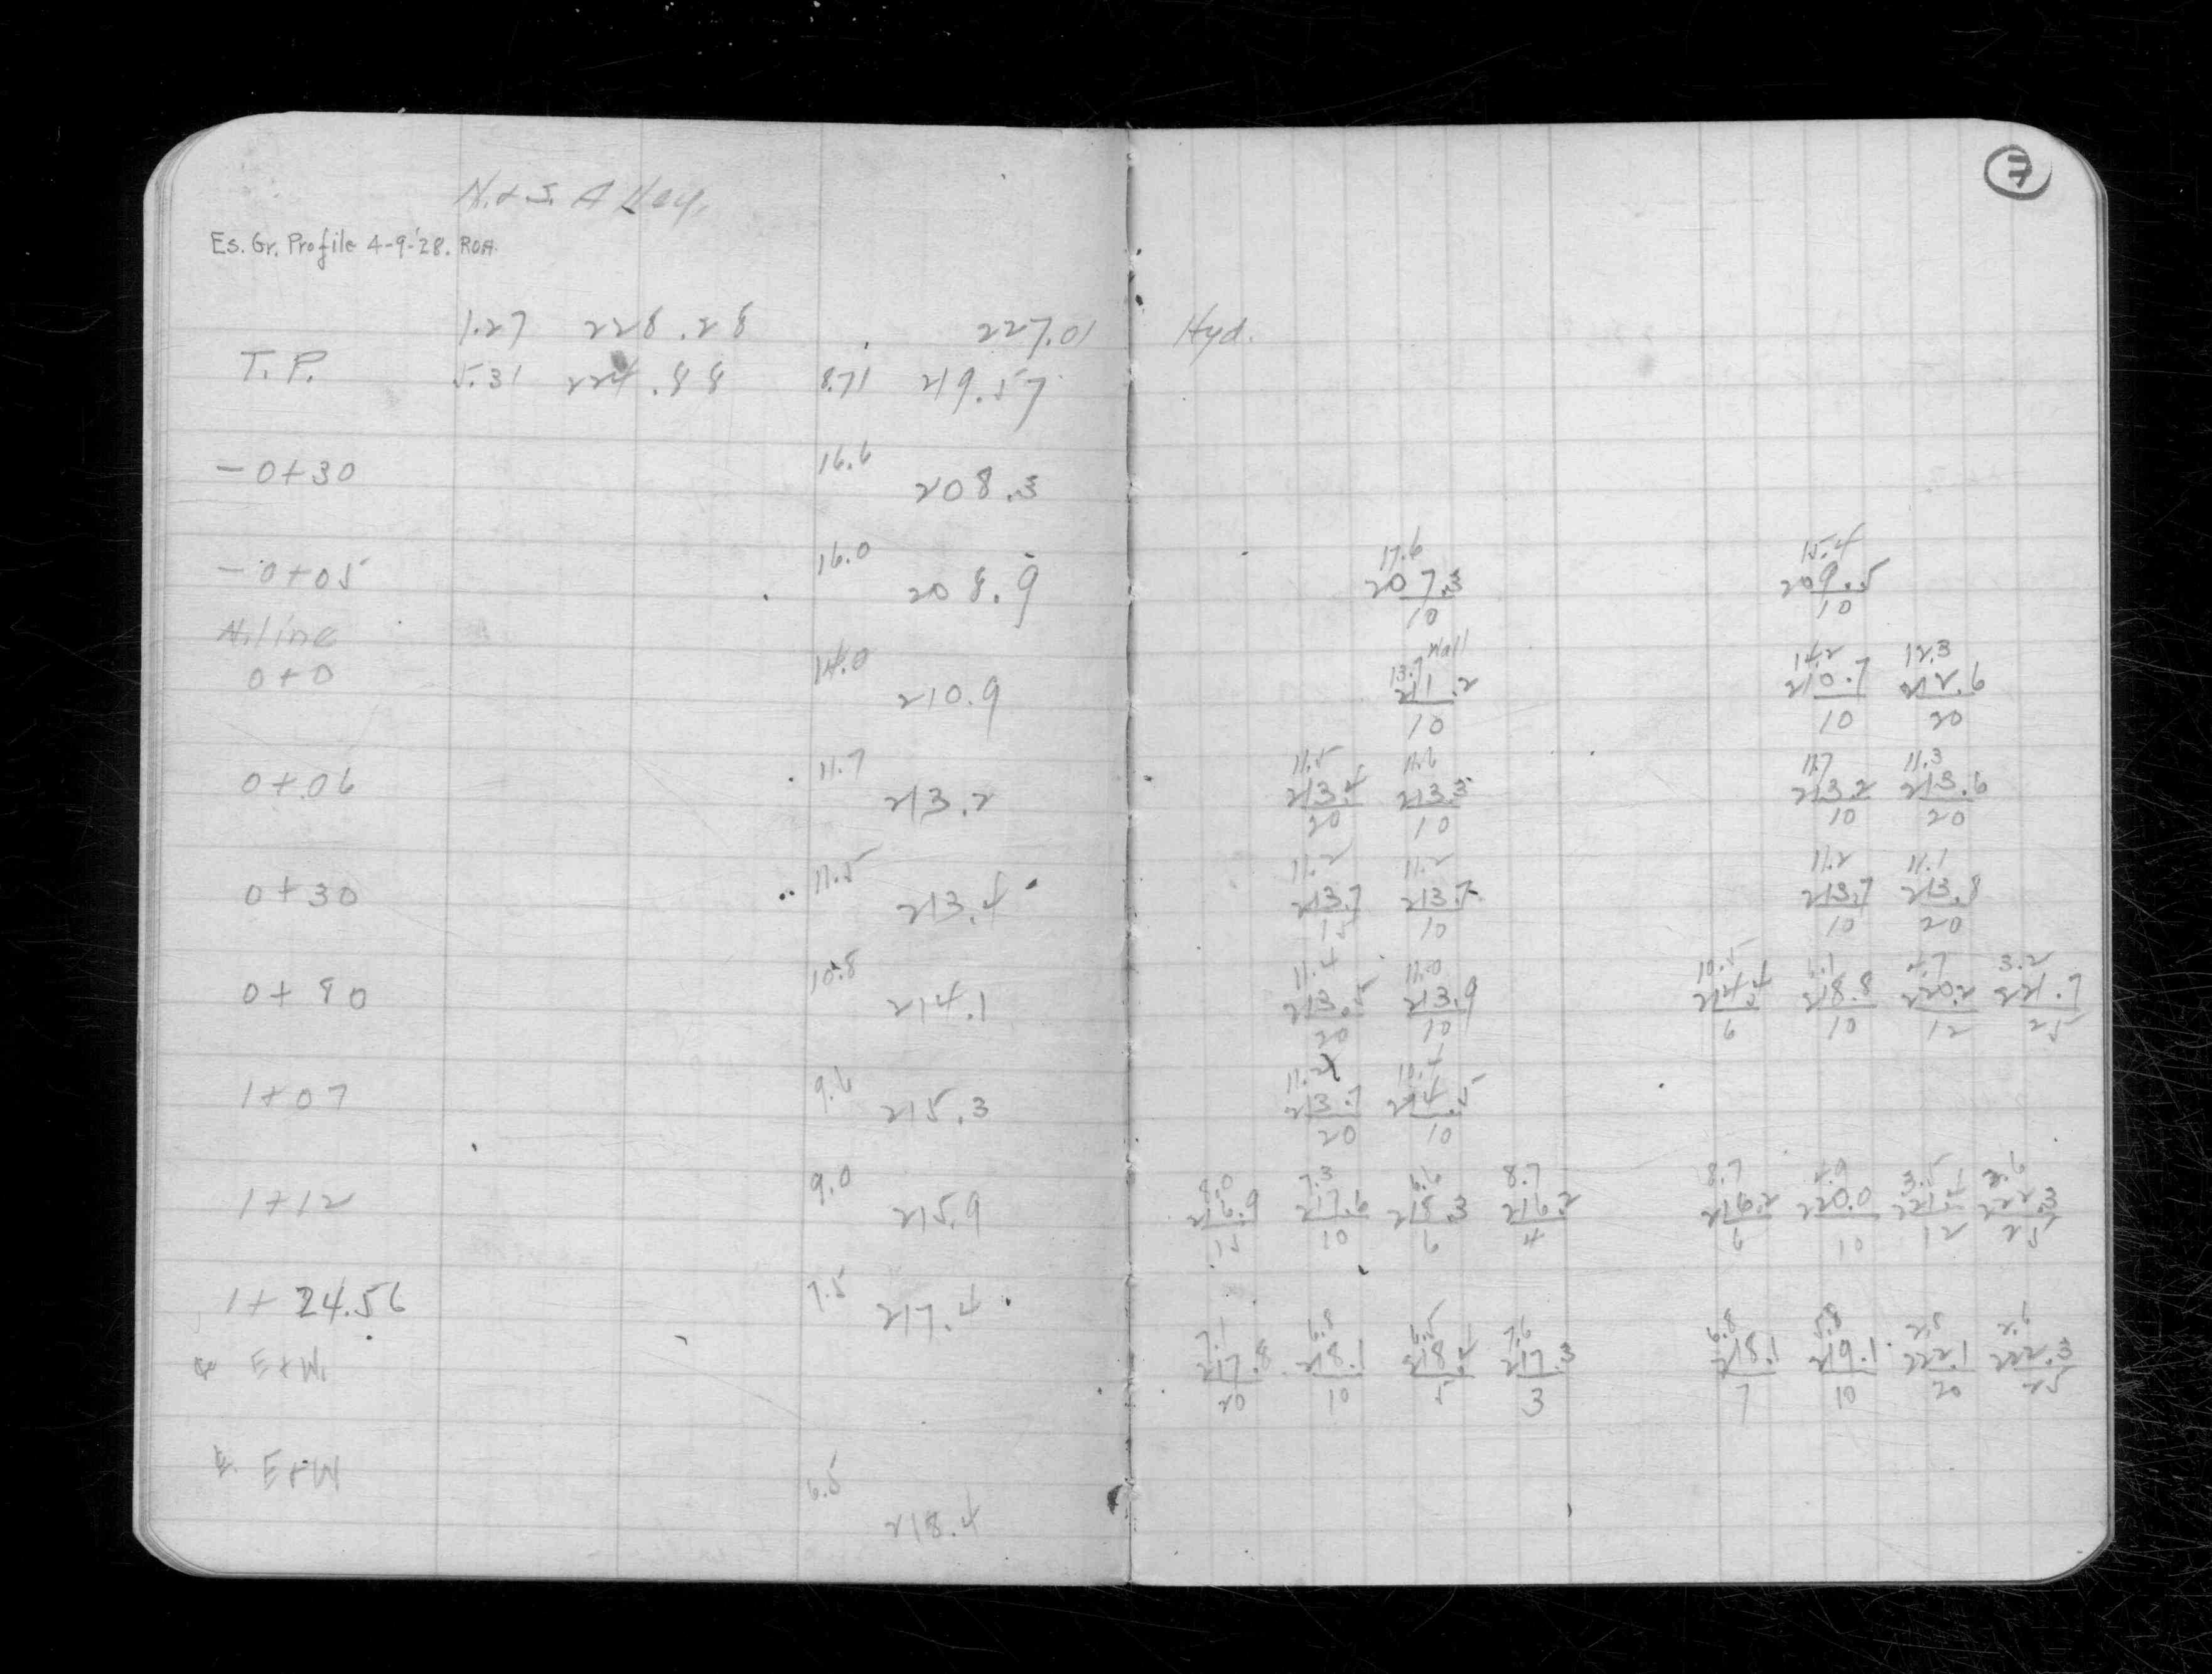 7
N. & S. Alley.
Es. Gr. Profile 4-9-'28. ROA.
1.27 228.28 227.01 Hyd.
T.P. 5.31 224.88 8.71 219.57
-0+30 16.6 208.3
-0+05 16.0 208.9
17.6 15.4
207.3 209.5
10 10
N. line
0+0 14.0 210.9
Wall
13.7 14.2 12.3
211.2 210.7 212.6
10 10 20
0+06 11.7 213.2
11.5 11.6 11.7 11.3
213.4 213.3 213.2 213.6
20 10 10 20
0+30 11.5 213.4
11.2 11.2 11.2 11.1
213.7 213.7 213.7 213.8
15 10 10 20
0+80 10.8 214.1
11.4 11.0 10.5 6.1 4.7 3.2
213.5 213.9 214.4 218.8 220.2 221.7
20 10 6 10 12 25
1+07 9.6 215.3
11.2 10.4
213.7 214.5
20 10
1+12 9.0 215.9
8.0 7.3 6.6 8.7 8.7 4.9 3.5 2.6
216.9 217.6 218.3 216.2 216.2 220.0 221.4 222.3
15 10 6 4 6 10 12 25
1+24.56 7.5 217.4
E+W.
7.1 6.8 6.5 7.6 6.8 5.8 2.8 2.6
217.8 218.1 218.4 217.3 218.1 219.1 222.1 222.3
20 10 5 3 7 10 20 25
E+W 6.5 218.4